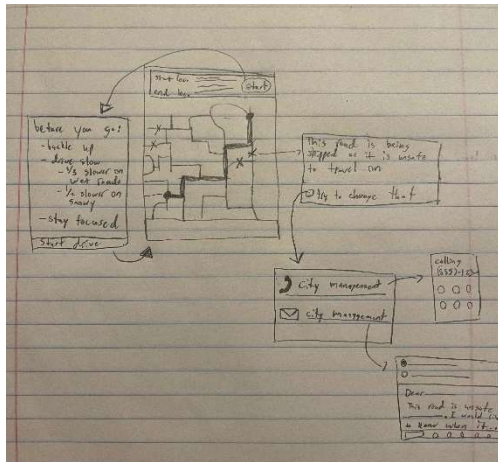 start loc.
end loc.
start
before you go:
- buckle up
- drive slow
- 1/3 slower on
wet roads
- 1/2 slower on
snowy
- stay focused
Start drive
This road is being
skipped as it is unsafe
to travel on
try to change that
City management
City management
calling
Dear
This road is unsafe
. I would
to know when it...